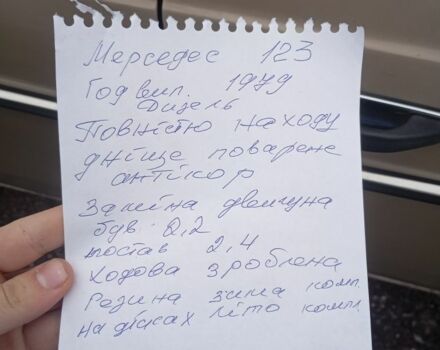 Мерседес 123
Год вип. 1979
Дизель
Повністю на ходу
днище поварене
антікор
Заміна двигуна
був 2,2
постав 2,4
Ходова зроблена
Резина зима комп.
на дісках літо комп